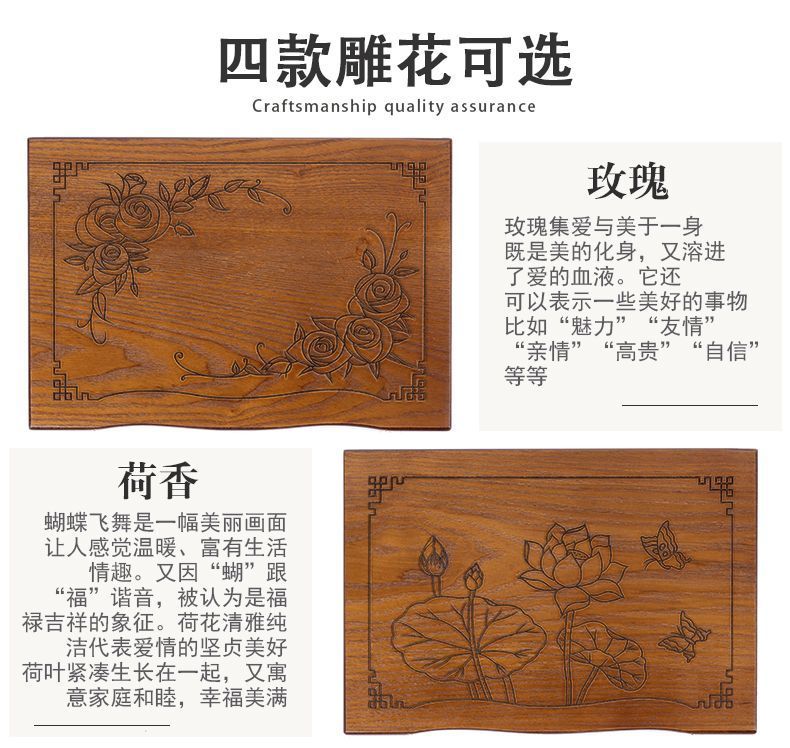 四款雕花可选
Craftsmanship quality assurance
玫瑰
玫瑰集爱与美于一身
既是美的化身，又溶进
了爱的血液。它还
可以表示一些美好的事物
比如“魅力” “友情”
“亲情” “高贵” “自信”
等等
荷香
蝴蝶飞舞是一幅美丽画面
让人感觉温暖、富有生活
情趣。又因“蝴”跟
“福”谐音，被认为是福
禄吉祥的象征。荷花清雅纯
洁代表爱情的坚贞美好
荷叶紧凑生长在一起，又寓
意家庭和睦，幸福美满